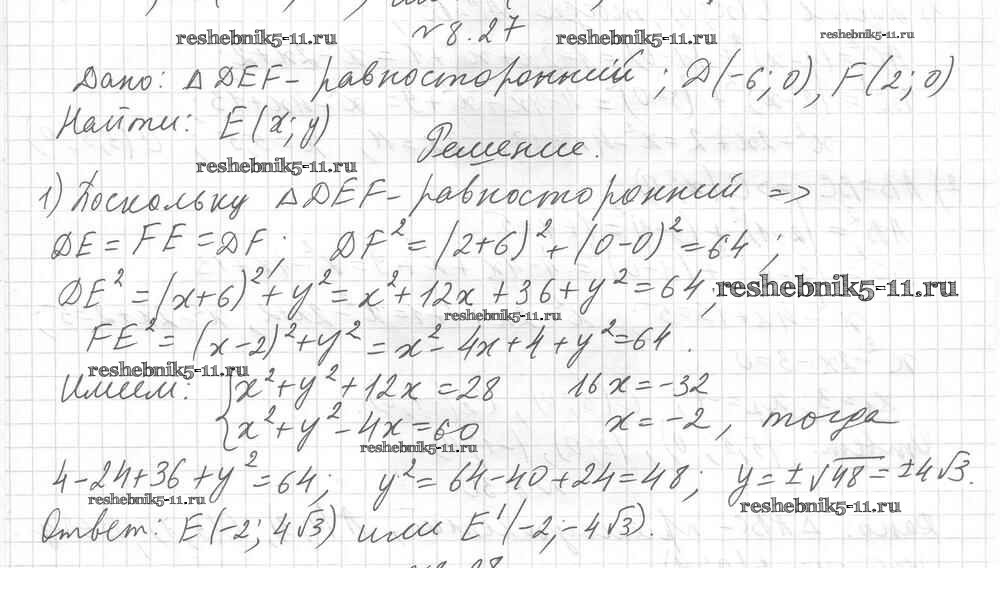 № 8.27
reshebnik5-11.ru reshebnik5-11.ru reshebnik5-11.ru
Дано: △DEF - равносторонний; D(-6; 0), F(2; 0)
Найти: E(x; y)
Решение.
reshebnik5-11.ru
1) Поскольку △DEF - равносторонний =>
DE = FE = DF; DF² = (2+6)² + (0-0)² = 64;
DE² = (x+6)² + y² = x² + 12x + 36 + y² = 64;
reshebnik5-11.ru
reshebnik5-11.ru
FE² = (x-2)² + y² = x² - 4x + 4 + y² = 64.
reshebnik5-11.ru
Имеем: { x² + y² + 12x = 28 16x = -32
x² + y² - 4x = 60 x = -2, тогда
reshebnik5-11.ru
4 - 24 + 36 + y² = 64; y² = 64 - 40 + 24 = 48; y = ±√48 = ±4√3.
reshebnik5-11.ru reshebnik5-11.ru
Ответ: E(-2; 4√3) или E'(-2; -4√3).